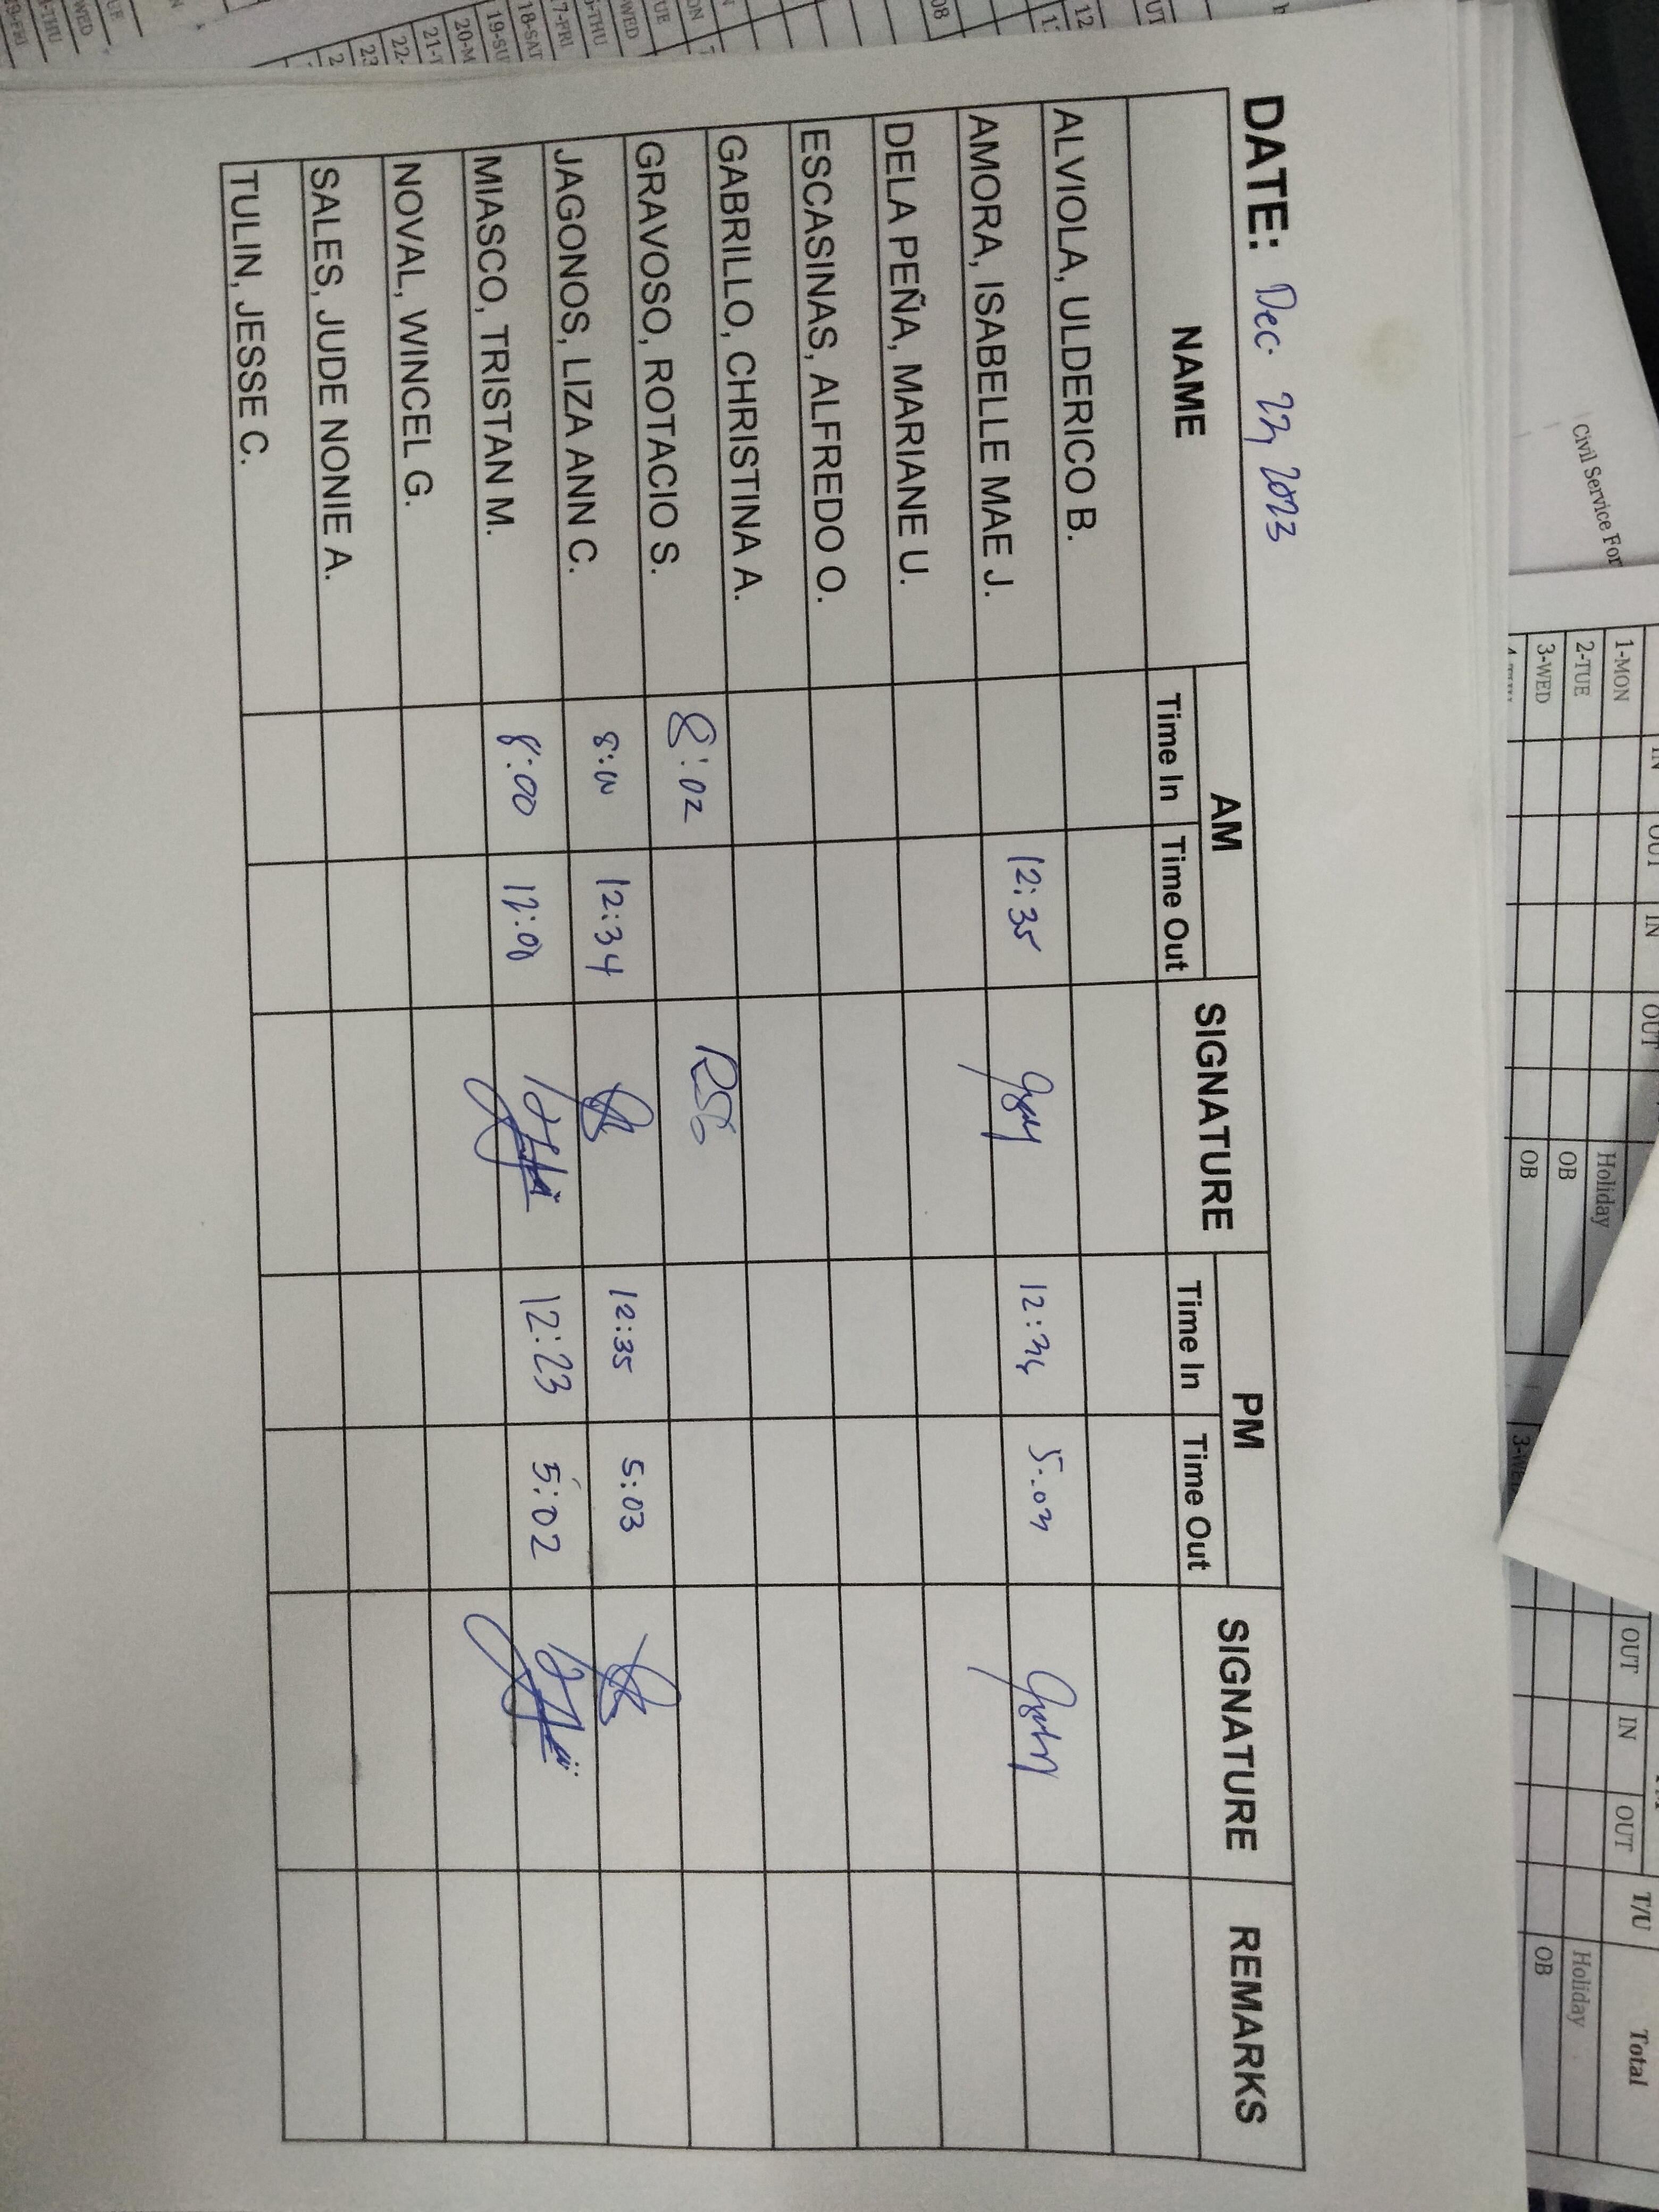 DATE: Dec. 22, 2023
NAME AM SIGNATURE PM SIGNATURE REMARKS
Time In Time Out Time In Time Out
ALVIOLA, ULDERICO B.
AMORA, ISABELLE MAE J. 12:35 12:36 5:03
DELA PEÑA, MARIANE U.
ESCASINAS, ALFREDO O.
GABRILLO, CHRISTINA A.
GRAVOSO, ROTACIO S. 8:02 RSG
JAGONOS, LIZA ANN C. 8:00 12:34 12:35 5:03
MIASCO, TRISTAN M. 8:00 12:00 12:23 5:02
NOVAL, WINCEL G.
SALES, JUDE NONIE A.
TULIN, JESSE C.
Civil Service For
1-MON Holiday
2-TUE OB
3-WED OB
IN OUT IN OUT
OUT IN OUT T/U Total
Holiday
OB
17-FRI
18-SAT
19-SU
20-M
21-T
22-
23